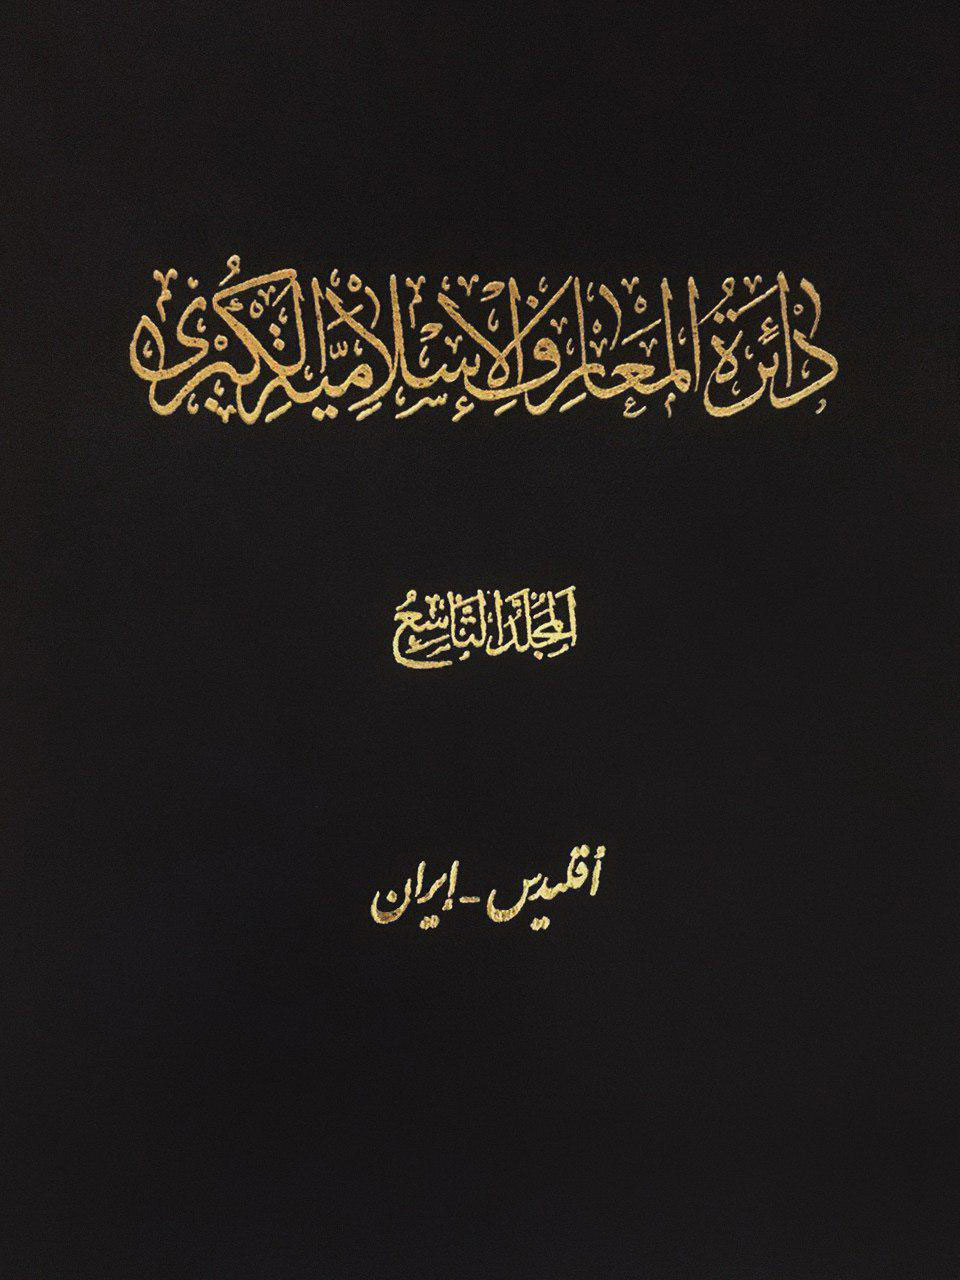 دَائِرَةُ المَعَارِفِ الإِسْلَامِيَّةِ الكُبْرَى
المُجَلَّدُ التَّاسِعُ
أُقليدس - إيران